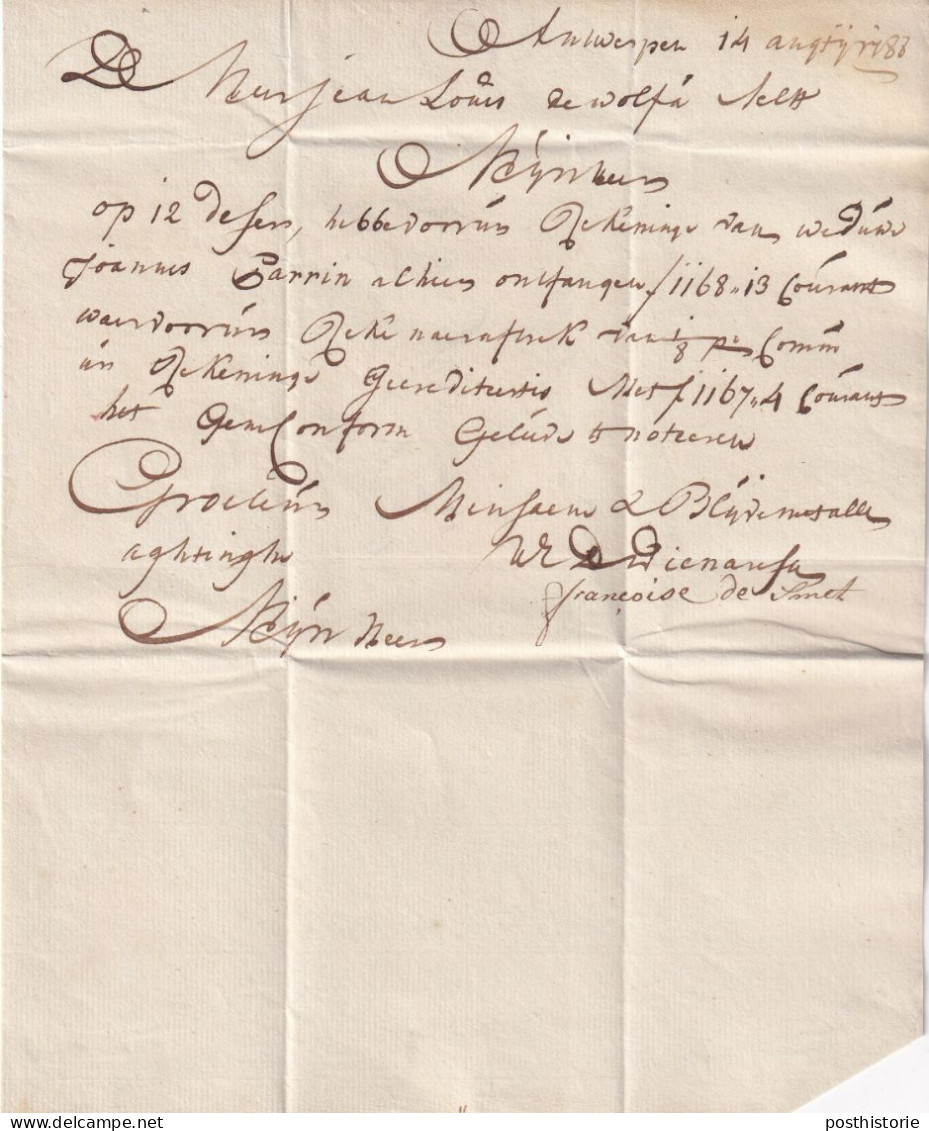 Antwerpen 14 augsti 1788
D Heer Jean Louis de Wolf a Aelst
Mijn heer
op 12 deser, hebbe voor uw Rekeninge van weduwe
Joannes Parrin alhier ontfangen f 1168„13 Courant
waer vooruwe Reke naer aftreck van 1/8 pc Comm
in Rekeninge Gecrediteert is Met f 1167„4 Courant
het Gene Conform Geliede te noteren
Groete uw Minsaem & Blijve met alle
aghtinghe UE D Dienaresse
françoise de Smet
Mijn Heer
posthistorie